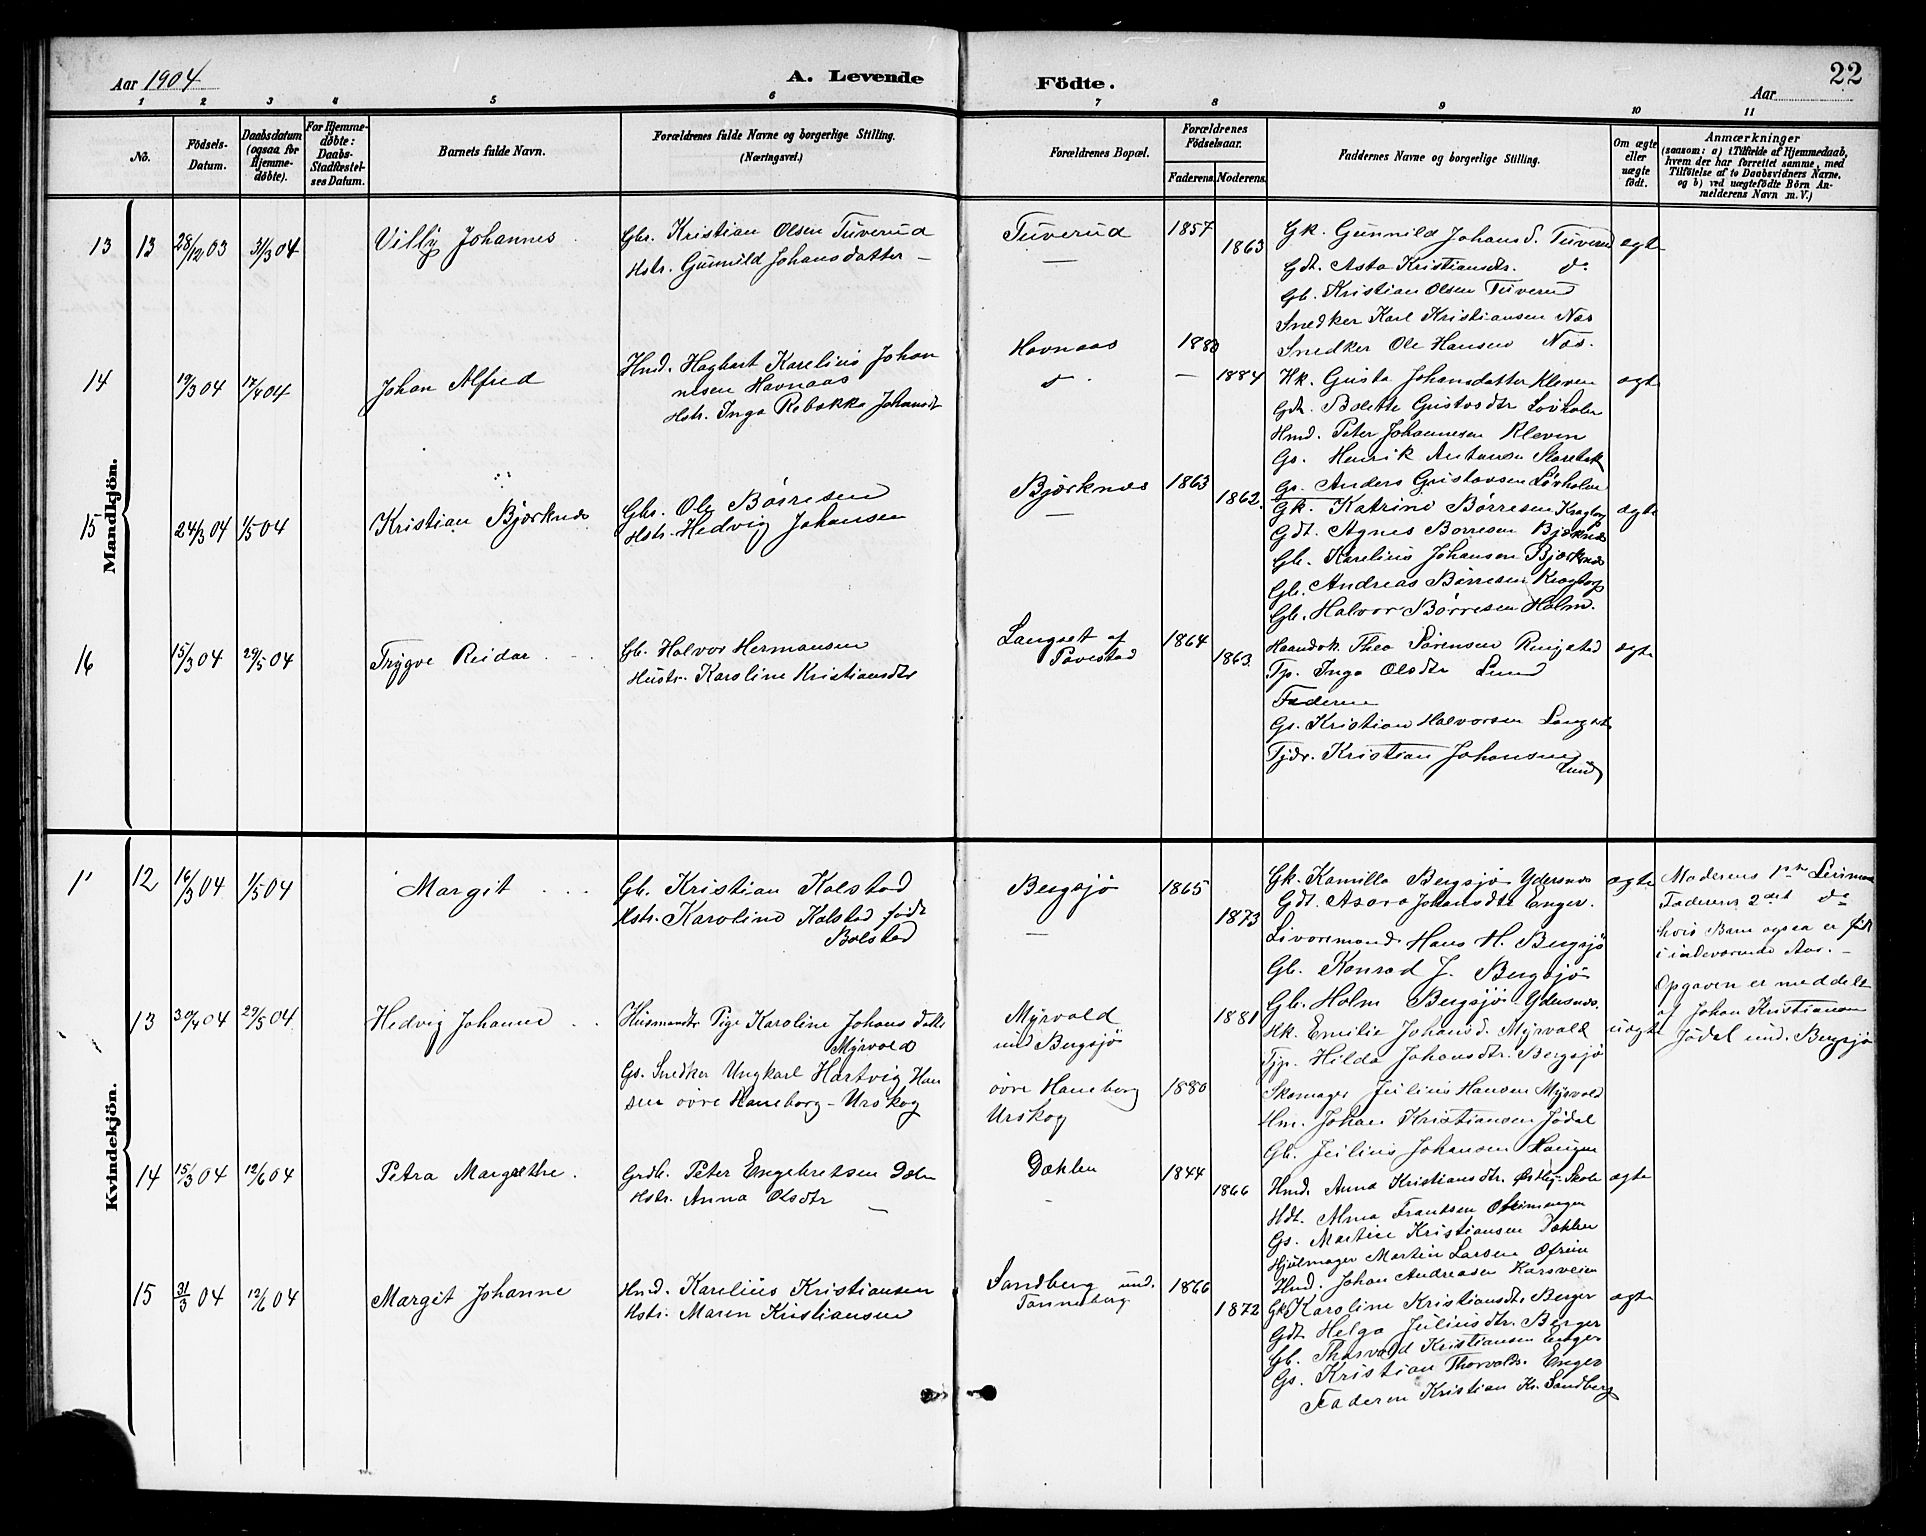 Aar 1904
A. Levende
Födte.
22
Aar
1 2 3 4 5 6 7 8 9 10 11
No.
Födsels-
Datum.
Daabsdatum
(ogsaa for
Hjemme-
döbte).
For Hjemme-
döbte:
Daabs-
Stadfæstel-
ses Datum.
Barnets fulde Navn.
Forældrenes fulde Navne og borgerlige Stilling.
(Næringsvei.)
Forældrenes Bopæl.
Forældrenes
Födselsaar.
Faderens. Moderens.
Faddernes Navne og borgerlige Stilling.
Om ægte
eller
uægte
födt.
Anmærkninger
(saasom: a) i Tilfælde af Hjemmedaab,
hvem der har forrettet samme, med
Tilföielse af to Daabsvidners Navne,
og b) ved uægtefödte Börn An-
melderens Navn m. V.)
Mandkjön.
13 13 28/12 03 31/3 04
Villy Johannes
Gbr. Kristian Olsen Tuverud
Hstr. Gunnild Johansdatter —
Tuverud
—
1857
1863
Gk. Gunnild Johansd. Tuverud
Gdt. Asta Kristiansdtr. do
Gb. Kristian Olsen Tuverud
Snedker Karl Kristiansen Næs
Snedker Ole Hansen Næs.
ægte
14 19/3 04 17/4 04
Johan Alfred
Hmd. Hagbart Karelius Johan
nesen Havnaas
Hstr. Inga Rebekka Johansdt
Havnaas
d
1880
—
1884
Hk. Gusta Johansdatter Kleven
Gdt. Bolette Gustavsdtr Lövholm
Hmd. Peter Johannesen Kleven
Gs. Henrik Antonsen
Gs. Anders Gustavsen Lövholm
ægte
15 24/3 04 1/5 04
Kristian Bjørknes
Gbr. Ole Børresen
Hstr. Hedvig Johansen
Bjørknes
—
1863
1862.
Gk. Katrine Børresen Kragtorp
Gdt. Agnes Børresen Bjørknes
Gb. Karelius Johansen Bjørknes
Gb. Andreas Børresen Kragtorp
Gb. Halvor Børresen Holm.
ægte
16 15/3 04 29/5 04
Trygve Reidar
Gb. Halvor Hermansen
Hustr. Karoline Kristiansdtr
Langset af
Povestad
1864
1863.
Haandv. Thea Sørensen Ringstad
Tp. Inga Olsdtr Lund
Faderen
Gs. Kristian Halvorsen Langset
Tjdr. Kristian Johansen
Lund
ægte
Kvindekjön.
12 16/3 04 1/5 04
Margit
Gb. Kristian Kolstad
Hstr. Karoline Kolstad født
Bolstad
Bergsjø
—
1865
1873
Gk. Kamilla Bergsjø Ydersnes
Gdt. Asora Johansdtr Enger.
Livøremand Hans H. Bergsjø
Gb. Konrad J. Bergsjø
Gb. Holm Bergsjø Ydersnes.
ægte
Moderens 1ste
Faderens 2det do
hvis Barn ogsaa er født
i indeværende Aar. —
13 30/4 04 29/5 04
Hedvig Johanne
Husmandtr Pige Karoline Johansdatter
Myrvold
Gs. Snedker Ungkarl Hartvig Han
sen øvre Haneborg - Urskog
Myrvold
und Bergsjø
øvre Haneborg
Urskog
1881
1880
Hk. Emilie Johansd. Myrvold
Tjp. Hilda Johansdtr. Bergsjø
Skomager Julius Hansen Myrvold
Hm. Johan Kristiansen Jødal
Gb. Julius Johansen Haugen
uægte
Opgaven er meddelt
af Johan Kristiansen
Jødal und. Bergsjø
14 15/3 04 12/6 04
Petra Margrethe.
Grdb. Peter Engebretsen Dælen
Hstr. Anna Olsdtr —
Dæhlen
-
1844
1866
Hmd. Anna Kristiansdtr. Østby-Skole
Hdt. Alma Frantsen
Gs. Martin Kristiansen Dæhlen
Hjulmager Martin Larsen Ofreim
Hmd. Johan Andreasen Karsveien
ægte
15 31/3 04 12/6 04
Margit Johanne
Hmd. Karelius Kristiansen
Hstr. Maren Kristiansen
Sandberg und.
Tanneberg
1866
1872
Gk Karoline Kristiansdtr. Berger
Gdt Helga Juliusdtr. Berger
Gb. Thorvald Kristiansen Enger
Gs. Kristian Thorvalds. Enger
Faderen Kristian Kr. Sandberg
ægte